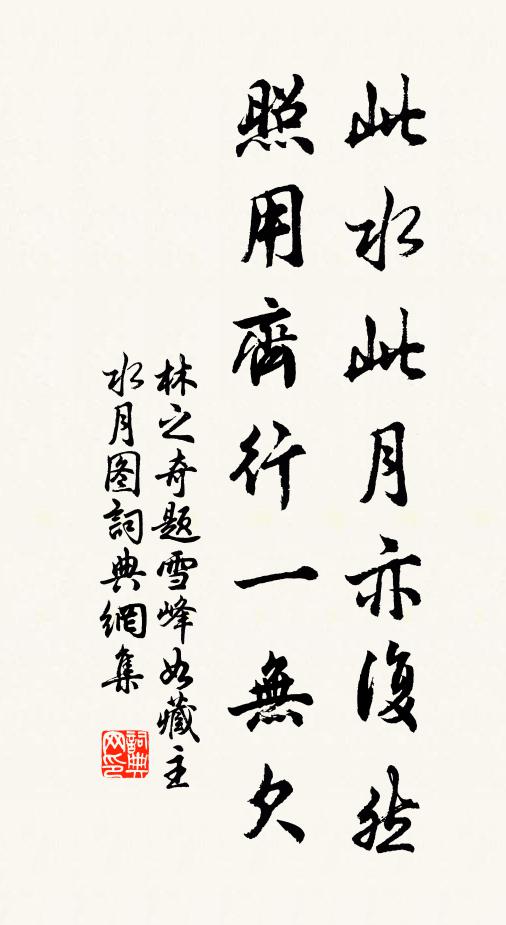 此水此月亦復然
照用齊行一無欠
林之奇題雪峰如藏主
水月图詞典網集
詞典网印